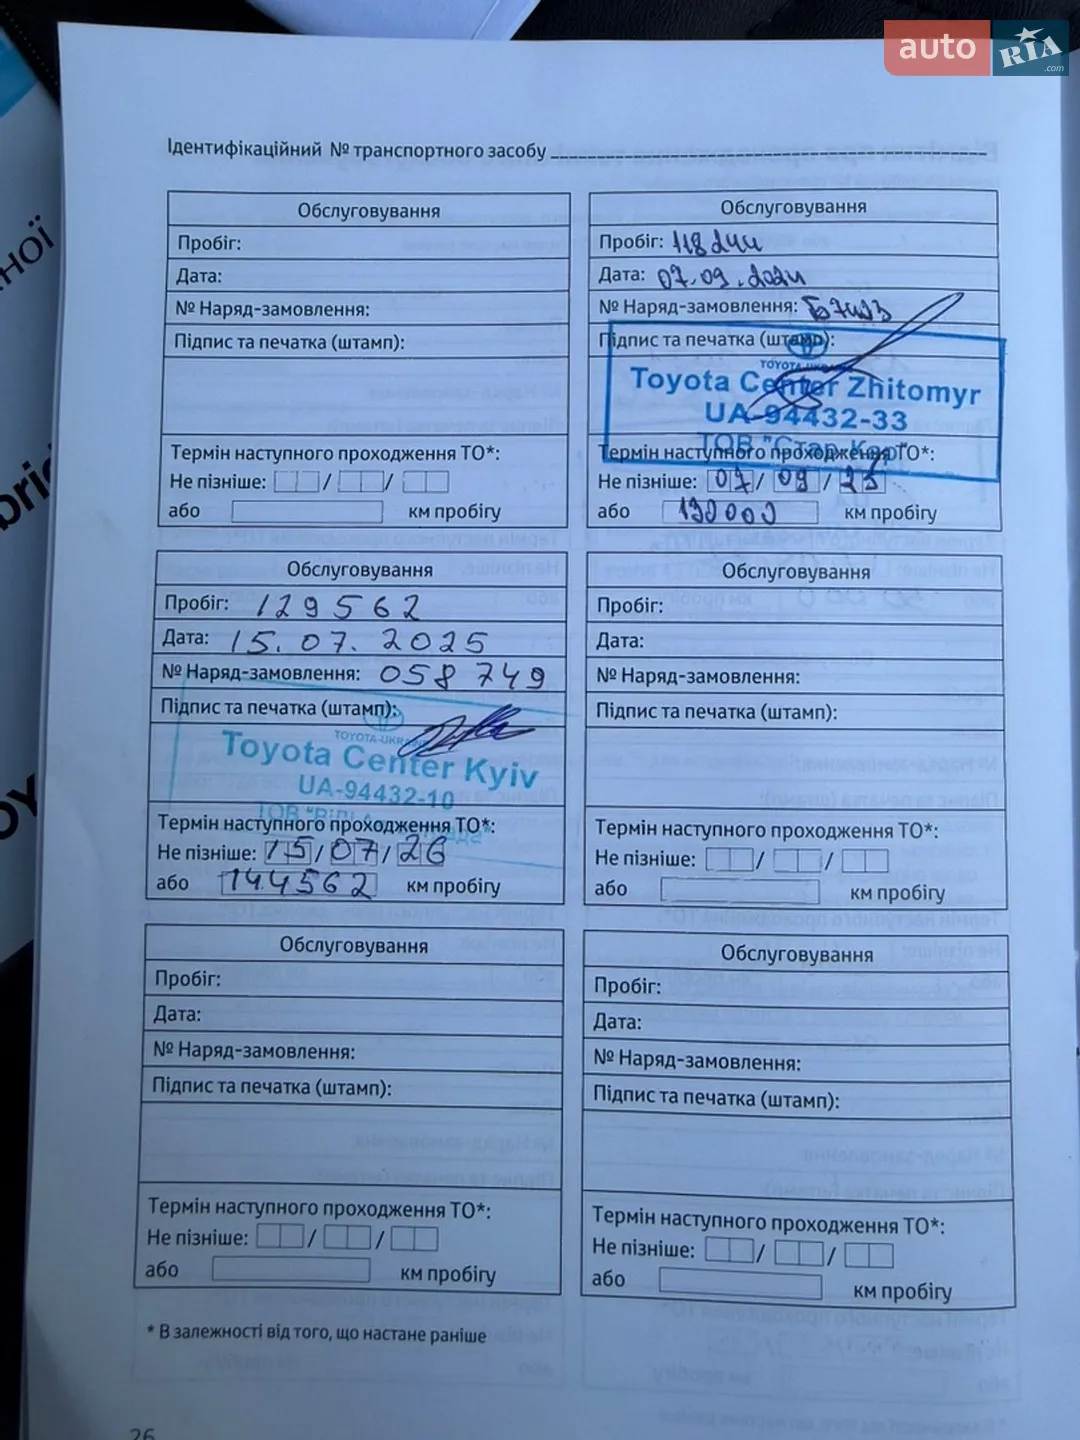 auto RIA.com
Ідентифікаційний № транспортного засобу
Обслуговування
Пробіг:
Дата:
№ Наряд-замовлення:
Підпис та печатка (штамп):
Термін наступного проходження ТО*:
Не пізніше: / /
або км пробігу
Обслуговування
Пробіг: 118244
Дата: 07.09.2024
№ Наряд-замовлення:
Підпис та печатка (штамп):
TOYOTA-UKRAINE
Toyota Center Zhitomyr
UA-94432-33
ТОВ "Стар-Кар"
Термін наступного проходження ТО*:
Не пізніше: 07 / 09 / 25
або 130000 км пробігу
Обслуговування
Пробіг: 129562
Дата: 15.07.2025
№ Наряд-замовлення: 058749
Підпис та печатка (штамп):
TOYOTA-UKRAINE
Toyota Center Kyiv
UA-94432-10
ТОВ
Термін наступного проходження ТО*:
Не пізніше: 15 / 07 / 26
або 144562 км пробігу
Обслуговування
Пробіг:
Дата:
№ Наряд-замовлення:
Підпис та печатка (штамп):
Термін наступного проходження ТО*:
Не пізніше: / /
або км пробігу
Обслуговування
Пробіг:
Дата:
№ Наряд-замовлення:
Підпис та печатка (штамп):
Термін наступного проходження ТО*:
Не пізніше: / /
або км пробігу
Обслуговування
Пробіг:
Дата:
№ Наряд-замовлення:
Підпис та печатка (штамп):
Термін наступного проходження ТО*:
Не пізніше: / /
або км пробігу
* В залежності від того, що настане раніше
26